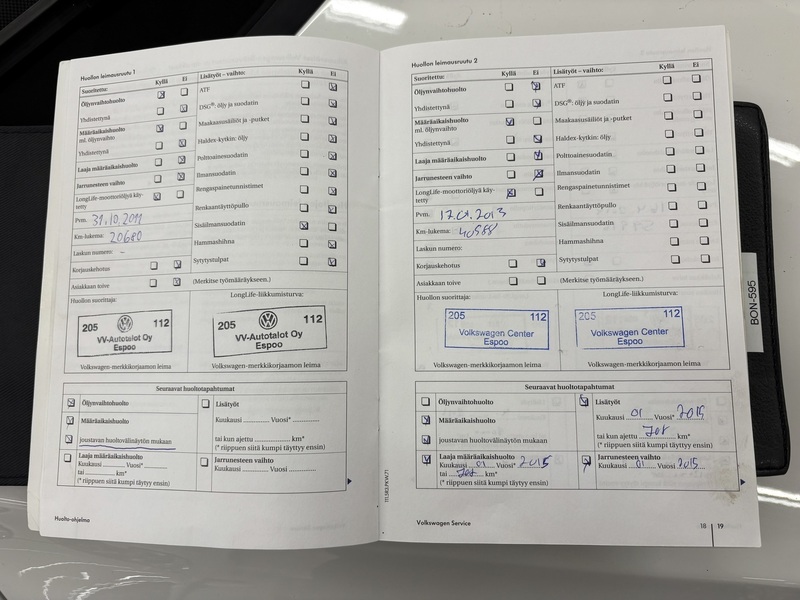 Huollon leimausruutu 1
Suoritettu: Kyllä Ei
Öljynvaihtohuolto
Yhdistettynä
Määräaikaishuolto
ml. öljynvaihto
Yhdistettynä
Laaja määräaikaishuolto
Jarrunesteen vaihto
LongLife-moottoriöljyä käy-
tetty
Pvm. 31.10.2011
Km-lukema: 20680
Laskun numero: -
Korjauskehotus
Asiakkaan toive
Lisätyöt – vaihto: Kyllä Ei
ATF
DSG®: öljy ja suodatin
Maakaasusäiliöt ja -putket
Haldex-kytkin: öljy
Polttoainesuodatin
Ilmansuodatin
Rengaspainetunnistimet
Renkaantäyttöpullo
Sisäilmansuodatin
Hammashihna
Sytytystulpat
(Merkitse työmääräykseen.)
Huollon suorittaja:
205 112
VV-Autotalot Oy
Espoo
Volkswagen-merkkikorjaamon leima
LongLife-liikkumisturva:
205 112
VV-Autotalot Oy
Espoo
Volkswagen-merkkikorjaamon leima
Seuraavat huoltotapahtumat
Öljynvaihtohuolto
Määräaikaishuolto
joustavan huoltovälinäytön mukaan
Laaja määräaikaishuolto
Kuukausi Vuosi*
tai km*
(* riippuen siitä kumpi täytyy ensin)
Lisätyöt
Kuukausi Vuosi*
tai kun ajettu km*
(* riippuen siitä kumpi täytyy ensin)
Jarrunesteen vaihto
Kuukausi Vuosi
Huolto-ohjelma
Huollon leimausruutu 2
Suoritettu: Kyllä Ei
Öljynvaihtohuolto
Yhdistettynä
Määräaikaishuolto
ml. öljynvaihto
Yhdistettynä
Laaja määräaikaishuolto
Jarrunesteen vaihto
LongLife-moottoriöljyä käy-
tetty
Pvm. 17.01.2013
Km-lukema: 40588
Laskun numero:
Korjauskehotus
Asiakkaan toive
Lisätyöt – vaihto: Kyllä Ei
ATF
DSG®: öljy ja suodatin
Maakaasusäiliöt ja -putket
Haldex-kytkin: öljy
Polttoainesuodatin
Ilmansuodatin
Rengaspainetunnistimet
Renkaantäyttöpullo
Sisäilmansuodatin
Hammashihna
Sytytystulpat
(Merkitse työmääräykseen.)
Huollon suorittaja:
205 112
Volkswagen Center
Espoo
Volkswagen-merkkikorjaamon leima
LongLife-liikkumisturva:
205 112
Volkswagen Center
Espoo
Volkswagen-merkkikorjaamon leima
Seuraavat huoltotapahtumat
Öljynvaihtohuolto
Määräaikaishuolto
joustavan huoltovälinäytön mukaan
Laaja määräaikaishuolto
Kuukausi 01 Vuosi* 2015
tai km*
(* riippuen siitä kumpi täytyy ensin)
Lisätyöt
Kuukausi 01 Vuosi* 2015
tai kun ajettu km*
(* riippuen siitä kumpi täytyy ensin)
Jarrunesteen vaihto
Kuukausi 01 Vuosi 2015
Volkswagen Service
18 19
BON-595